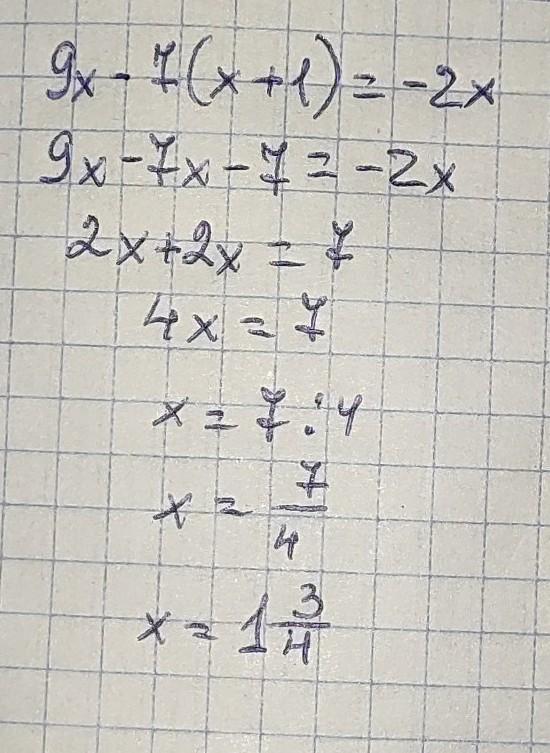 9x - 7(x + 1) = -2x
9x - 7x - 7 = -2x
2x + 2x = 7
4x = 7
x = 7 : 4
x = 7/4
x = 1 3/4